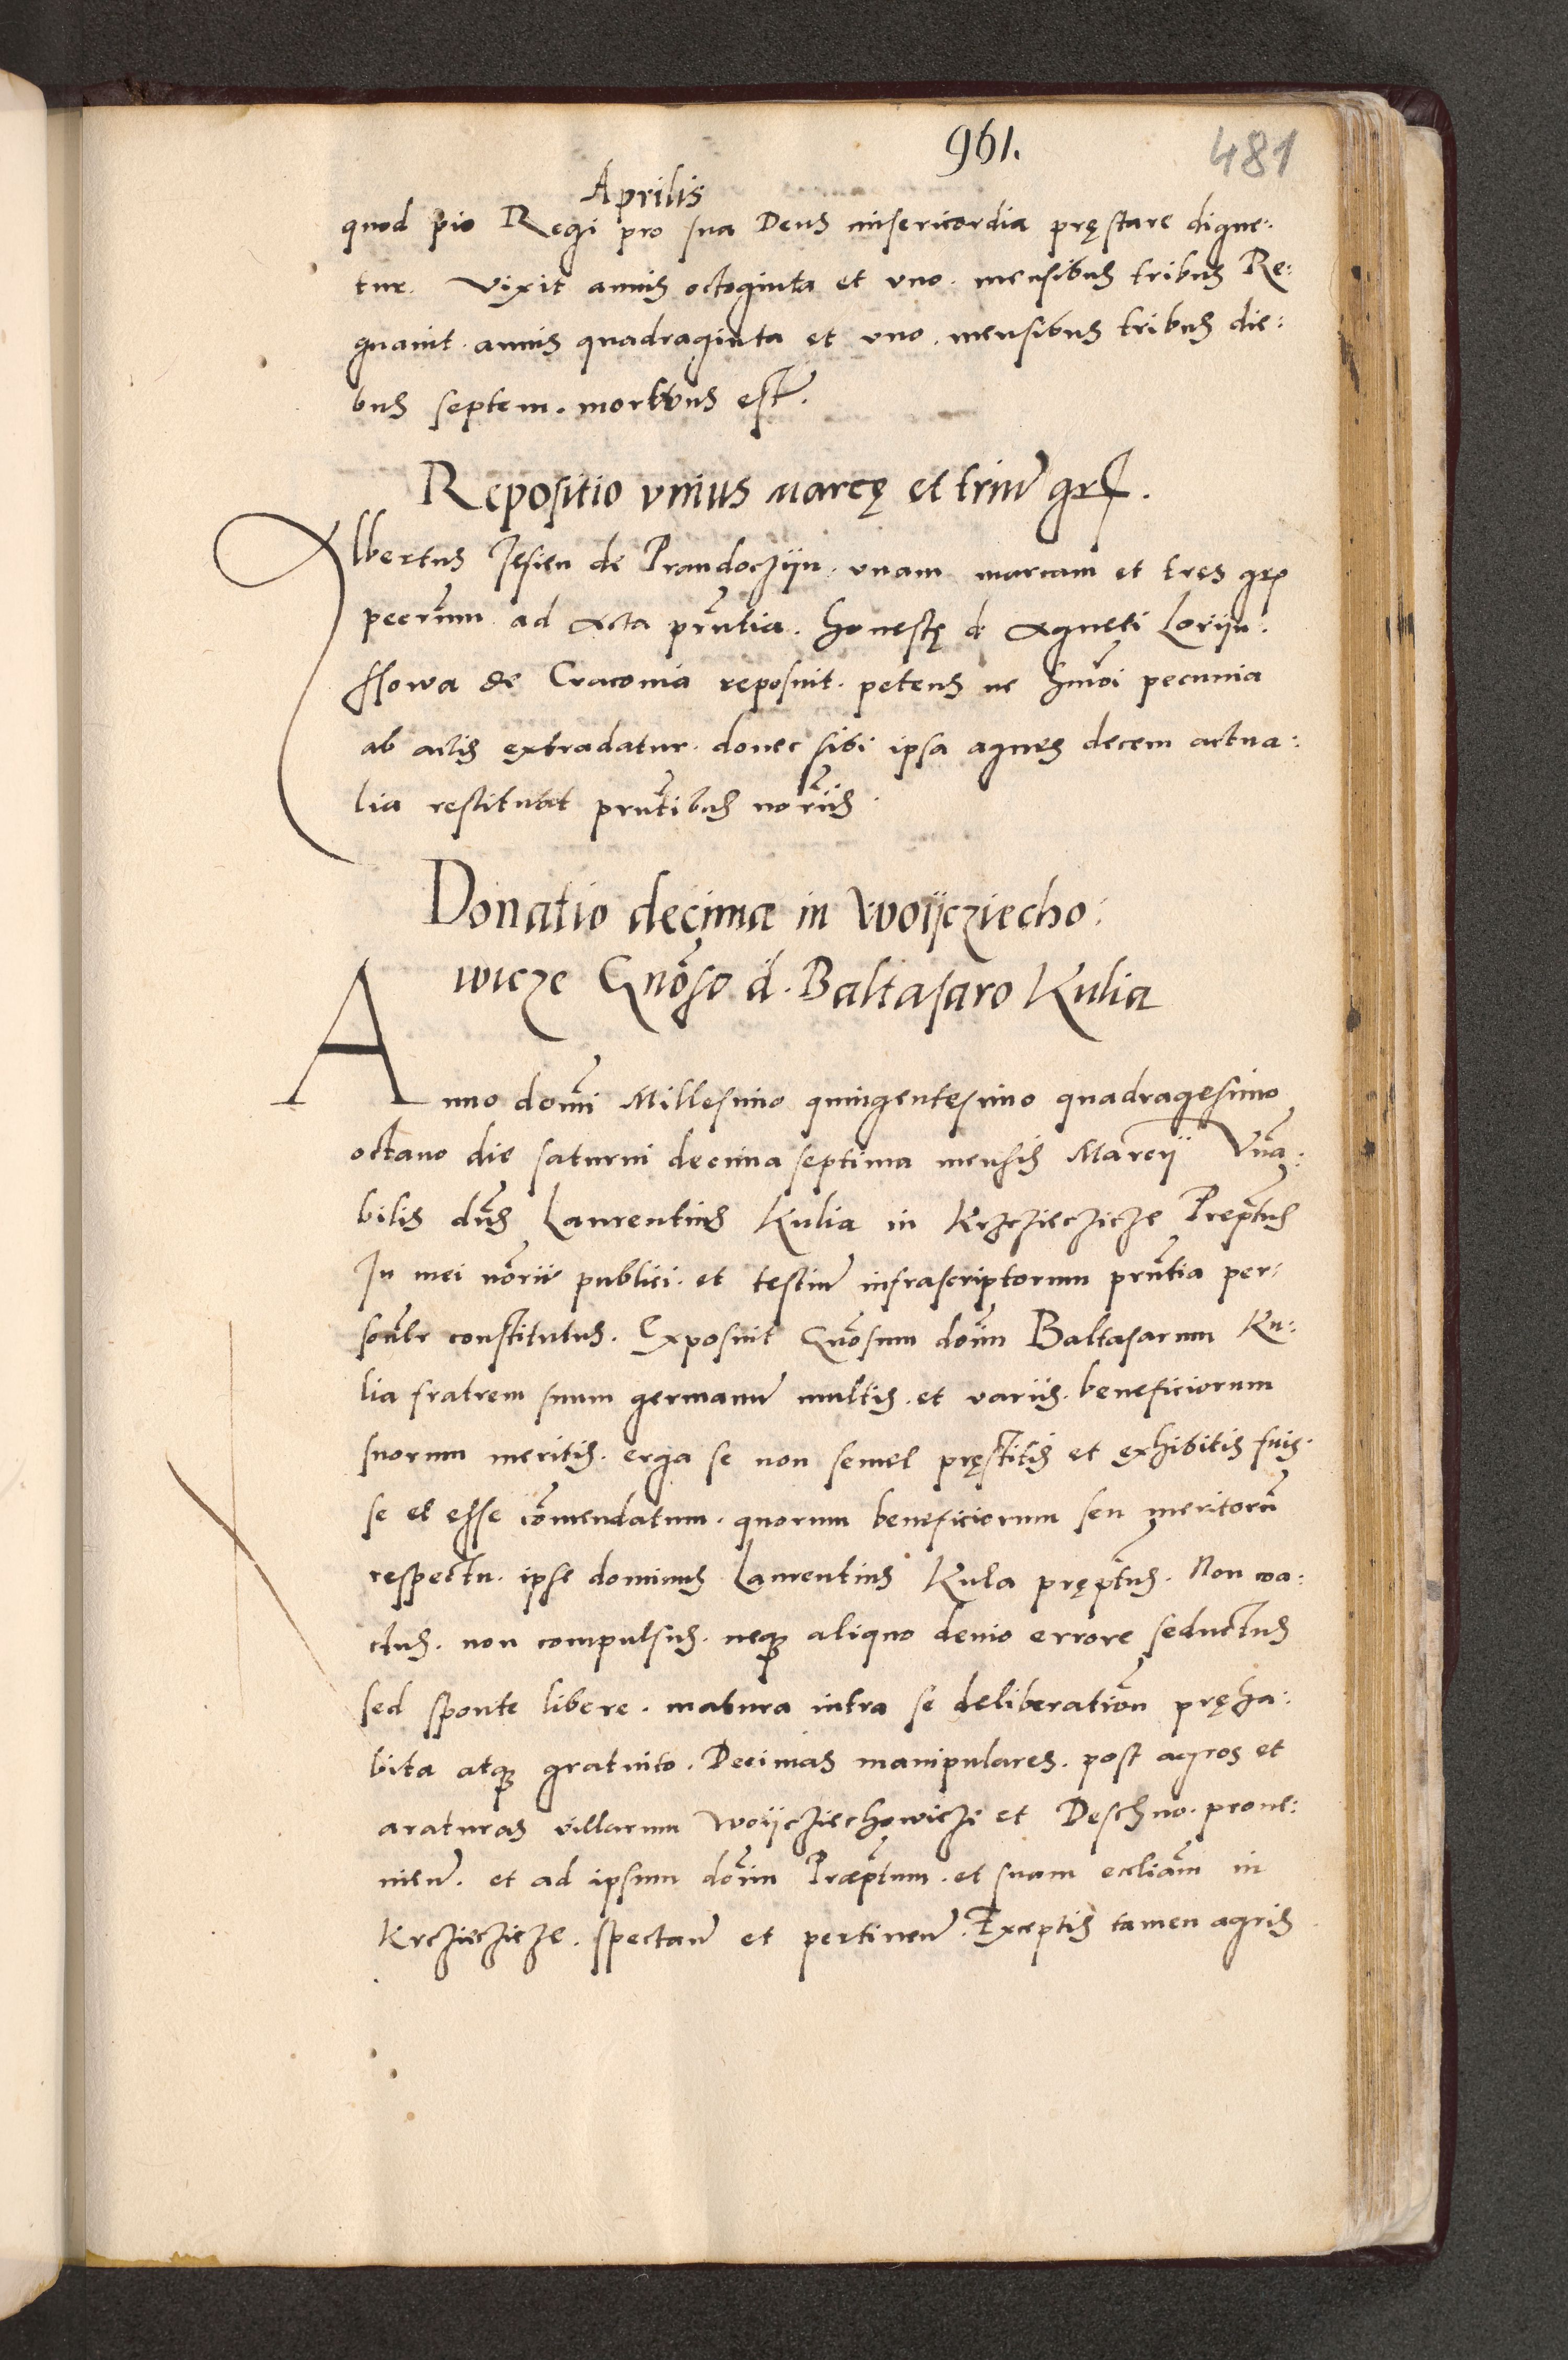 961.
481
Aprilis
quod pio Regi pro sua Deus misericordia pręstare digne:
tur. Vixit annis octoginta et uno. mensibus tribus Re:
gnauit. annis quadraginta et uno. mensibus tribus die:
bus septem. mortuus est.
Repositio vnius marcę et triu͂ grs.
Albertus Jesien de Prandoczijn. vnam marcam et tres gro
pecu͂m ad Acta pn͂tia. honestę d. Agneti Lorijn:
ssowa de Cracouia reposuit. petens ne hm͂oi pecunia
ab actis extradatur. donec sibi ipsa agnes decem actua:
lia restituat pn͂tibus no͂rijs.
Donatio decimæ in Woijcziecho:
wicze Gn͂oso d. Baltasaro Kulia
Anno domi͂ Millesimo quingentesimo quadragesimo
octauo die saturni decima septima mensis Marcij Vn͂a:
bilis dn͂s Laurentius Kulia in Krzczieczicze Prep͂tus
In mei no͂rii publici. et testiu͂ infrascriptorum pn͂tia per:
son͂lr constitutus. Exposuit Gn͂osum do͂im Baltasarum Ku:
lia fratrem suum germanu͂ multis. et variis. beneficiorum
suorum meritis. erga se non semel pręstitis et exhibitis fuis:
se et esse co͂mendatum. quorum beneficiorum seu meritoru͂
respectu. ipse dominus Laurentius Kula pręp͂tus. Non coa:
ctus. non compulsus. neq aliquo deuio errore seductus
sed sponte libere. matura intra se deliberatio͂n pręha:
bita atq gratuito. Decimas manipulares. post agros et
araturas villarum Woijcziechowiczi et Deschno. proue:
nien͂. et ad ipsum do͂im Præp͂tum. et suam eccliam͂ in
Krczieczicze. spectan͂ et pertinen͂. Exceptis tamen agris